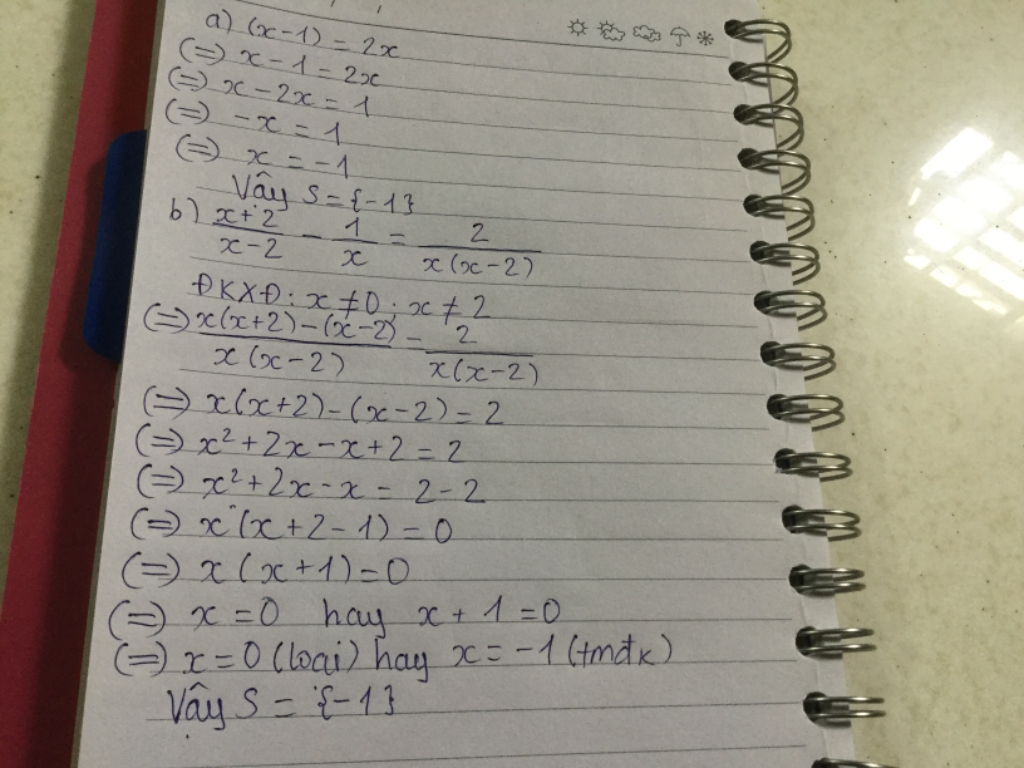 a) (x-1) = 2x
(=) x - 1 = 2x
(=) x - 2x = 1
(=) -x = 1
(=) x = -1
Vậy S = {-1}
b) \frac{x+2}{x-2} - \frac{1}{x} = \frac{2}{x(x-2)}
ĐKXĐ: x ≠ 0; x ≠ 2
(=) \frac{x(x+2)-(x-2)}{x(x-2)} = \frac{2}{x(x-2)}
(=) x(x+2)-(x-2) = 2
(=) x² + 2x - x + 2 = 2
(=) x² + 2x - x = 2 - 2
(=) x (x + 2 - 1) = 0
(=) x (x + 1) = 0
(=) x = 0 hay x + 1 = 0
(=) x = 0 (loại) hay x = -1 (tmđk)
Vậy S = {-1}